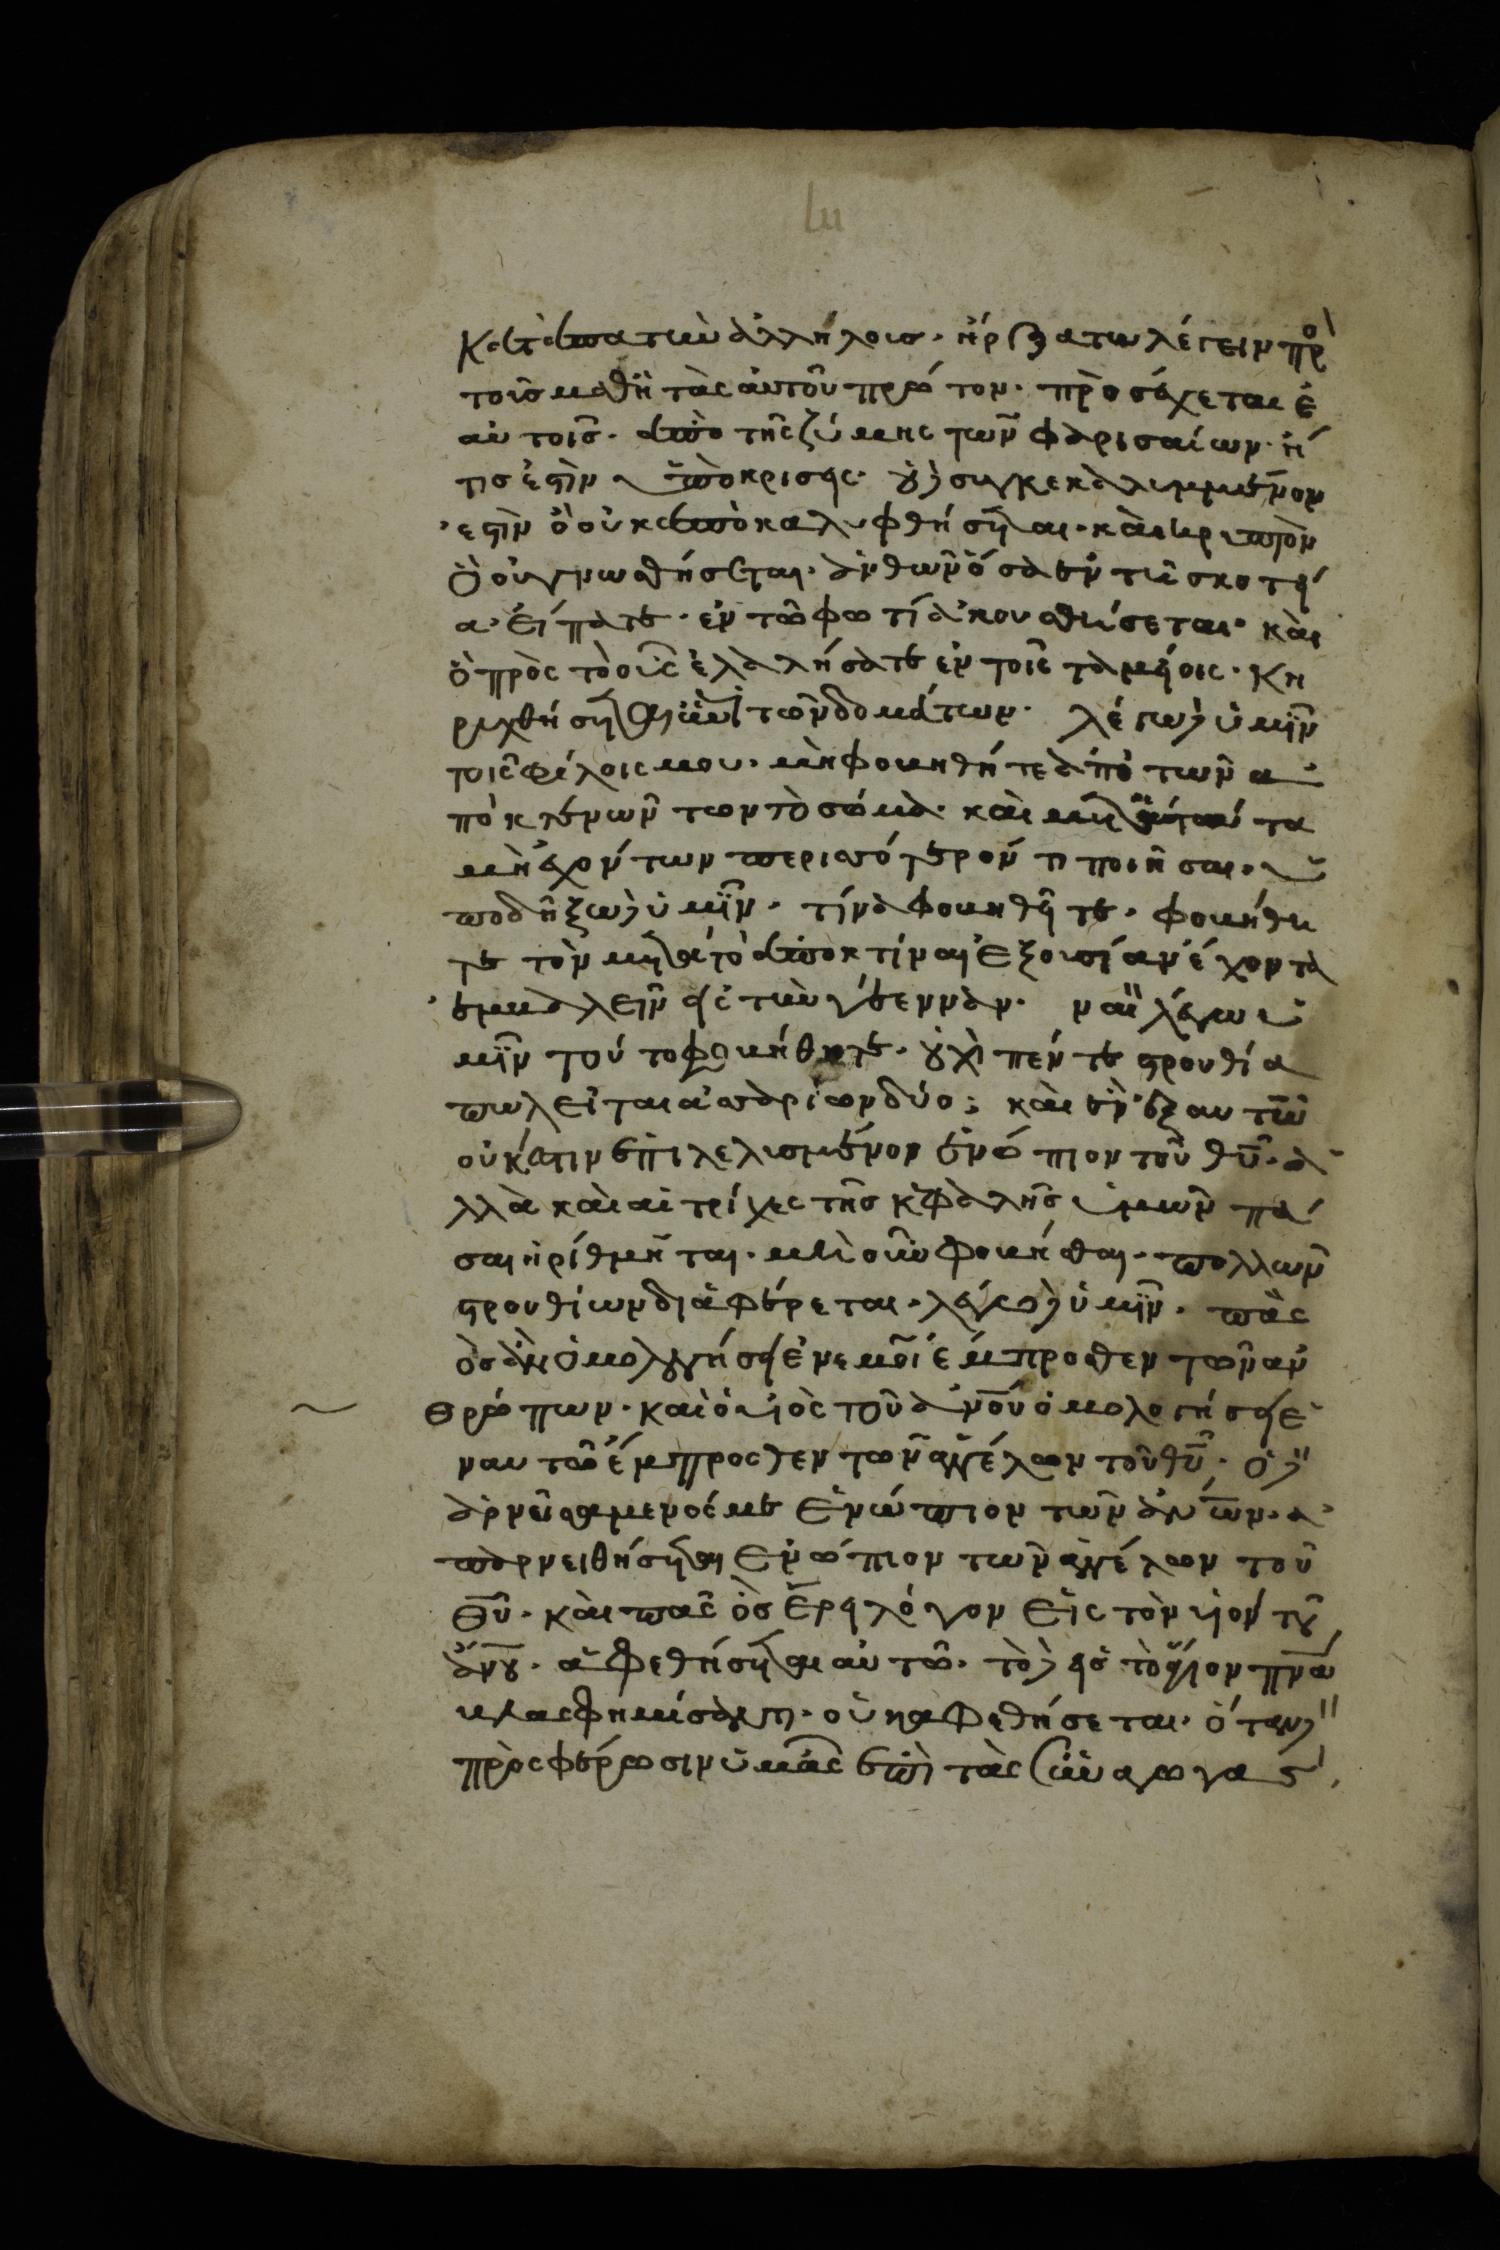 καταπατεῖν ἀλλήλοισ· ἤρξατω λέγειν πρ
τοῖσ μαθητὰς αὐτοῦ πρώτον· πρὸσέχεται ἑ
αὐτοῖσ· ἀπὸ τῆς ζύμης τῶν φαρισαίων· ἥ
τισ ἐστὶν ὑπόκρισης· οὐ δὲ συγκεκαλυμμένον
ἐστὶν ὃ οὐκ ἀπὸκαλυφθήσηται· καὶ κρυπτὸν
ὃ οὐ γνωσθήσεται· ἀνθῶν ὅσα ἐν τῆ σκοτεί
α· εἴπατε· ἐν τῶ φωτὶ ἀκουσθήσεται· καὶ
ὃ πρὸς τὸ οὖς ἐλαλήσατε ἐν τοῖς ταμείοις· κη
ρυχθήσηται ἐπὶ τῶν δομάτων· λέγω δὲ ὑμῖν
τοῖς φίλοις μου· μὴ φοβηθήτε ἀπὸ τῶν ἀ
πὸκτενῶντων τὸ σῶμα· καὶ μετὰ ταῦτα
μὴ ἐχόντων περισσότερόν τι ποιῆσαι· ὑ
ποδήξω δὲ ὑμῖν· τίνα φοβηθῆτε· φοβήθη
τε τὸν μετὰ τὸ ἀποκτίναι ἐξουσίαν ἔχοντα
ἐμβαλεῖν εἰς τὴν γέενναν· ναὶ λέγω ὑ
μῖν τοῦτο φοβήθητε· οὐχὶ πέντε στρουθία
πωλεῖται ἀσσαρίων δύο; καὶ ἓν ἐξ αυτῶν
οὐκ ἔστιν ἐπιλελισμένον ἐνώπιον τοῦ θῦ· ἀ
λλὰ καὶ αἱ τρίχες τῆς κεφαλῆς ὑμῶν πᾶ
σαι ἠρίθμηνται· μὴ οὖν φοβήσθαι· πολλῶν
στρουθίων διάφέρεται· λέγω δὲ ὑμῖν· πᾶς
ὃσ ἂν ὁμολογήσει ἐν ἐμοὶ ἔμπροσθεν τῶν ἀν
θρώπων· καὶ ὁ υἱὸς τοῦ ἀνοῦ ὁμολογήσει ἐ
ν αυτῶ ἔμπροσθεν τῶν ἀγγέλων τοῦ θῦ· ὁ δὲ
ἀρνησάμενος με ἐνώπιον τῶν ἀνων· ἀ
παρνειθήσηται ἐνώπιον τῶν ἀγγέλων τοῦ
θῦ· καὶ πᾶς ὃσ ἐρεῖ λόγον εἰς τὸν υἱὸν τοῦ
ἀνου· ἀφεθήσηται αὐτῶ· τὸ δὲ εἰς τὸ ἅγιον πνα
βλασφημίσαντι· οὐκ ἀφεθήσεται· ὅταν δὲ
πρὸςφέρωσιν ὑμᾶς ἐπὶ τὰς συναγωγας